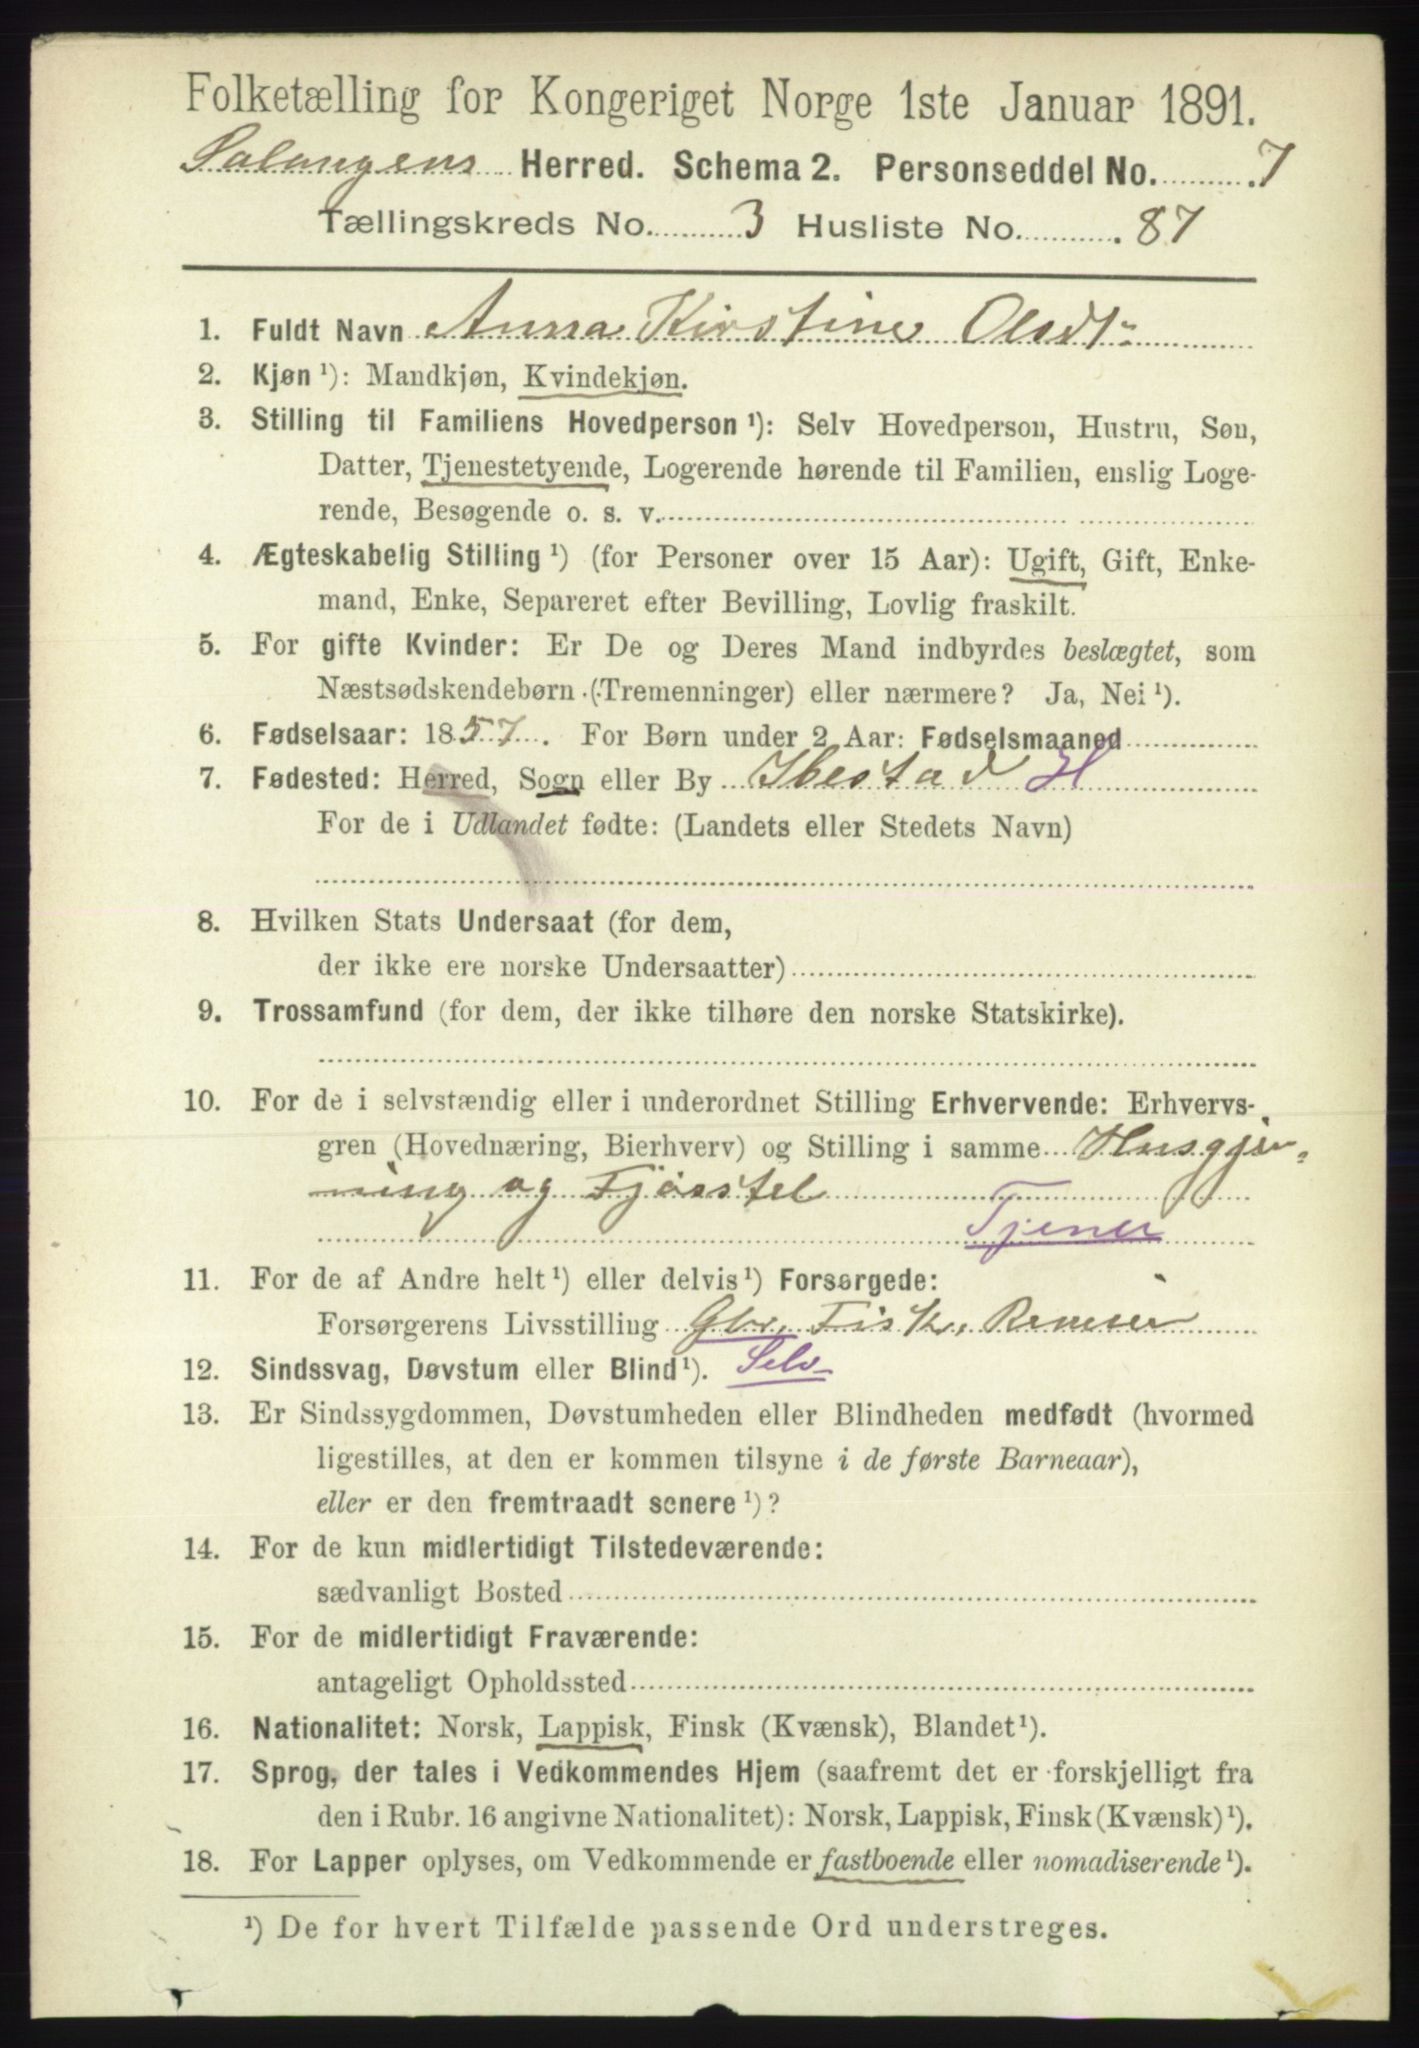 Folketælling for Kongeriget Norge 1ste Januar 1891.
Salangens Herred. Schema 2. Personseddel No. 7
Tællingskreds No. 3 Husliste No. 87
1. Fuldt Navn Anna Kirstine Olsdt.
2. Kjøn ¹): Mandkjøn, Kvindekjøn.
3. Stilling til Familiens Hovedperson ¹): Selv Hovedperson, Hustru, Søn,
Datter, Tjenestetyende, Logerende hørende til Familien, enslig Loge-
rende, Besøgende o. s. v.
4. Ægteskabelig Stilling ¹) (for Personer over 15 Aar): Ugift, Gift, Enke-
mand, Enke, Separeret efter Bevilling, Lovlig fraskilt.
5. For gifte Kvinder: Er De og Deres Mand indbyrdes beslægtet, som
Næstsødskendebørn (Tremenninger) eller nærmere? Ja, Nei ¹).
6. Fødselsaar: 1857. For Børn under 2 Aar: Fødselsmaaned
7. Fødested: Herred, Sogn eller By Ibestad H
For de i Udlandet fødte: (Landets eller Stedets Navn)
8. Hvilken Stats Undersaat (for dem,
der ikke ere norske Undersaatter)
9. Trossamfund (for dem, der ikke tilhøre den norske Statskirke).
10. For de i selvstændig eller i underordnet Stilling Erhvervende: Erhvervs-
gren (Hovednæring, Bierhverv) og Stilling i samme Husgjer-
ning og Fjøsstel
Tjener
11. For de af Andre helt ¹) eller delvis ¹) Forsørgede:
Forsørgerens Livsstilling Gbr. Fisk.
12. Sindssvag, Døvstum eller Blind ¹). Selv
13. Er Sindssygdommen, Døvstumheden eller Blindheden medfødt (hvormed
ligestilles, at den er kommen tilsyne i de første Barneaar),
eller er den fremtraadt senere ¹)?
14. For de kun midlertidigt Tilstedeværende:
sædvanligt Bosted
15. For de midlertidigt Fraværende:
antageligt Opholdssted
16. Nationalitet: Norsk, Lappisk, Finsk (Kvænsk), Blandet ¹).
17. Sprog, der tales i Vedkommendes Hjem (saafremt det er forskjelligt fra
den i Rubr. 16 angivne Nationalitet): Norsk, Lappisk, Finsk (Kvænsk) ¹).
18. For Lapper oplyses, om Vedkommende er fastboende eller nomadiserende ¹).
¹) De for hvert Tilfælde passende Ord understreges.